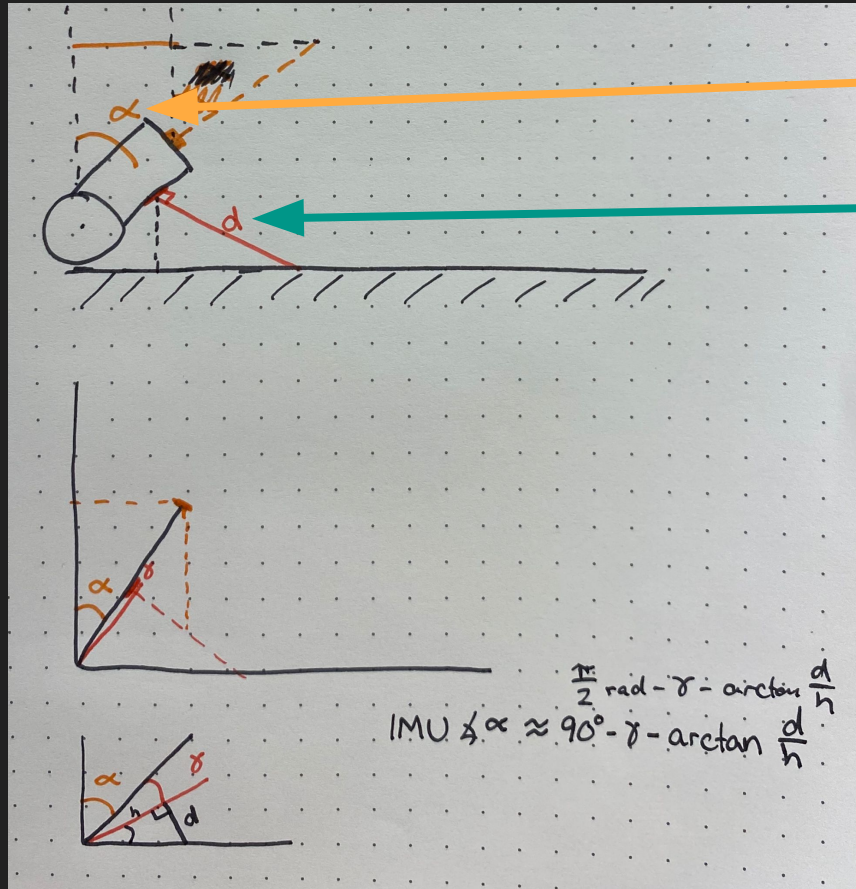 α
d
α
γ
π/2 rad - γ - arctan d/h
IMU ∡α ≈ 90° - γ - arctan d/h
α
γ
h
d